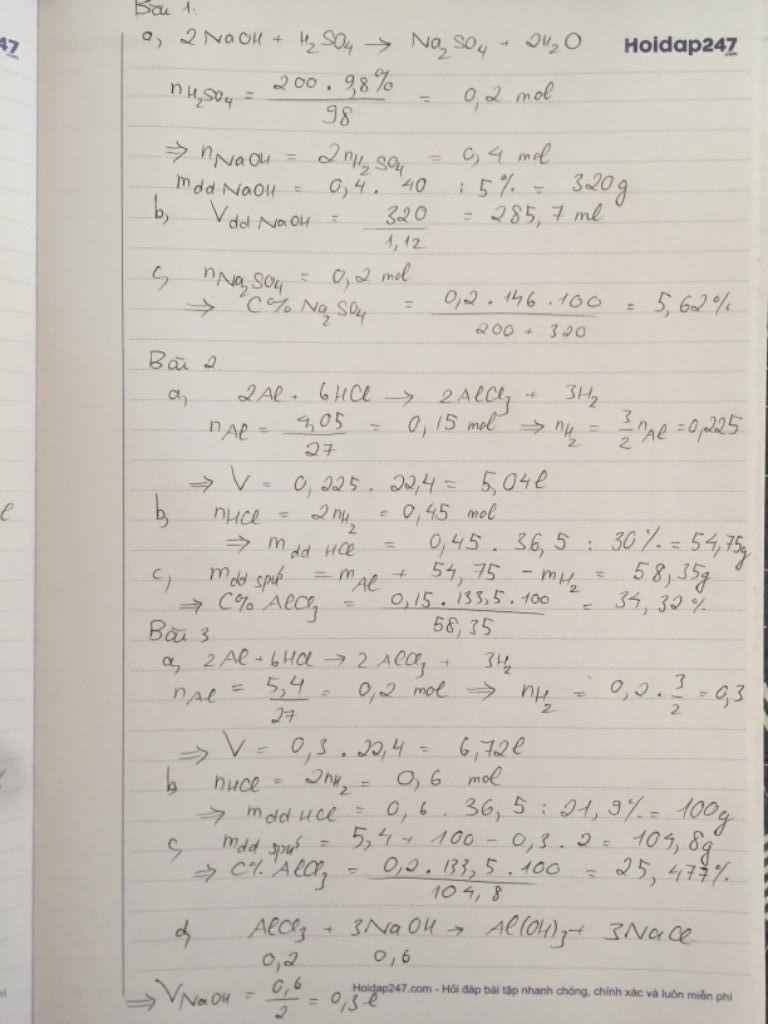 Bài 1.
a, 2NaOH + H₂SO₄ → Na₂SO₄ + 2H₂O
Hoidap247.com
47
nH₂SO₄ = 200 . 9,8% / 98 = 0,2 mol
⇒ nNaOH = 2nH₂SO₄ = 0,4 mol
mdd NaOH = 0,4 . 40 : 5% = 320g
b, Vdd NaOH = 320 / 1,12 = 285,7 ml
c, nNa₂SO₄ = 0,2 mol
⇒ C% Na₂SO₄ = 0,2 . 146 . 100 / 200 + 320 = 5,62%
Bài 2
a, 2Al + 6HCl → 2AlCl₃ + 3H₂
nAl = 4,05 / 27 = 0,15 mol ⇒ nH₂ = 3/2 nAl = 0,225
⇒ V = 0,225 . 22,4 = 5,04l
b, nHCl = 2nH₂ = 0,45 mol
⇒ mdd HCl = 0,45 . 36,5 : 30% = 54,75g
c, mdd spứ = mAl + 54,75 - mH₂ = 58,35g
⇒ C% AlCl₃ = 0,15 . 133,5 . 100 / 58,35 = 34,32%
Bài 3
a, 2Al + 6HCl → 2AlCl₃ + 3H₂
nAl = 5,4 / 27 = 0,2 mol ⇒ nH₂ = 0,2 . 3/2 = 0,3
⇒ V = 0,3 . 22,4 = 6,72l
b, nHCl = 2nH₂ = 0,6 mol
⇒ mdd HCl = 0,6 . 36,5 : 21,9% = 100g
c, mdd spứ = 5,4 + 100 - 0,3 . 2 = 104,8g
⇒ C% AlCl₃ = 0,2 . 133,5 . 100 / 104,8 = 25,477%
d, AlCl₃ + 3NaOH → Al(OH)₃ + 3NaCl
0,2 0,6
⇒ VNaOH = 0,6 / 2 = 0,3l
Hoidap247.com - Hỏi đáp bài tập nhanh chóng, chính xác và luôn miễn phí